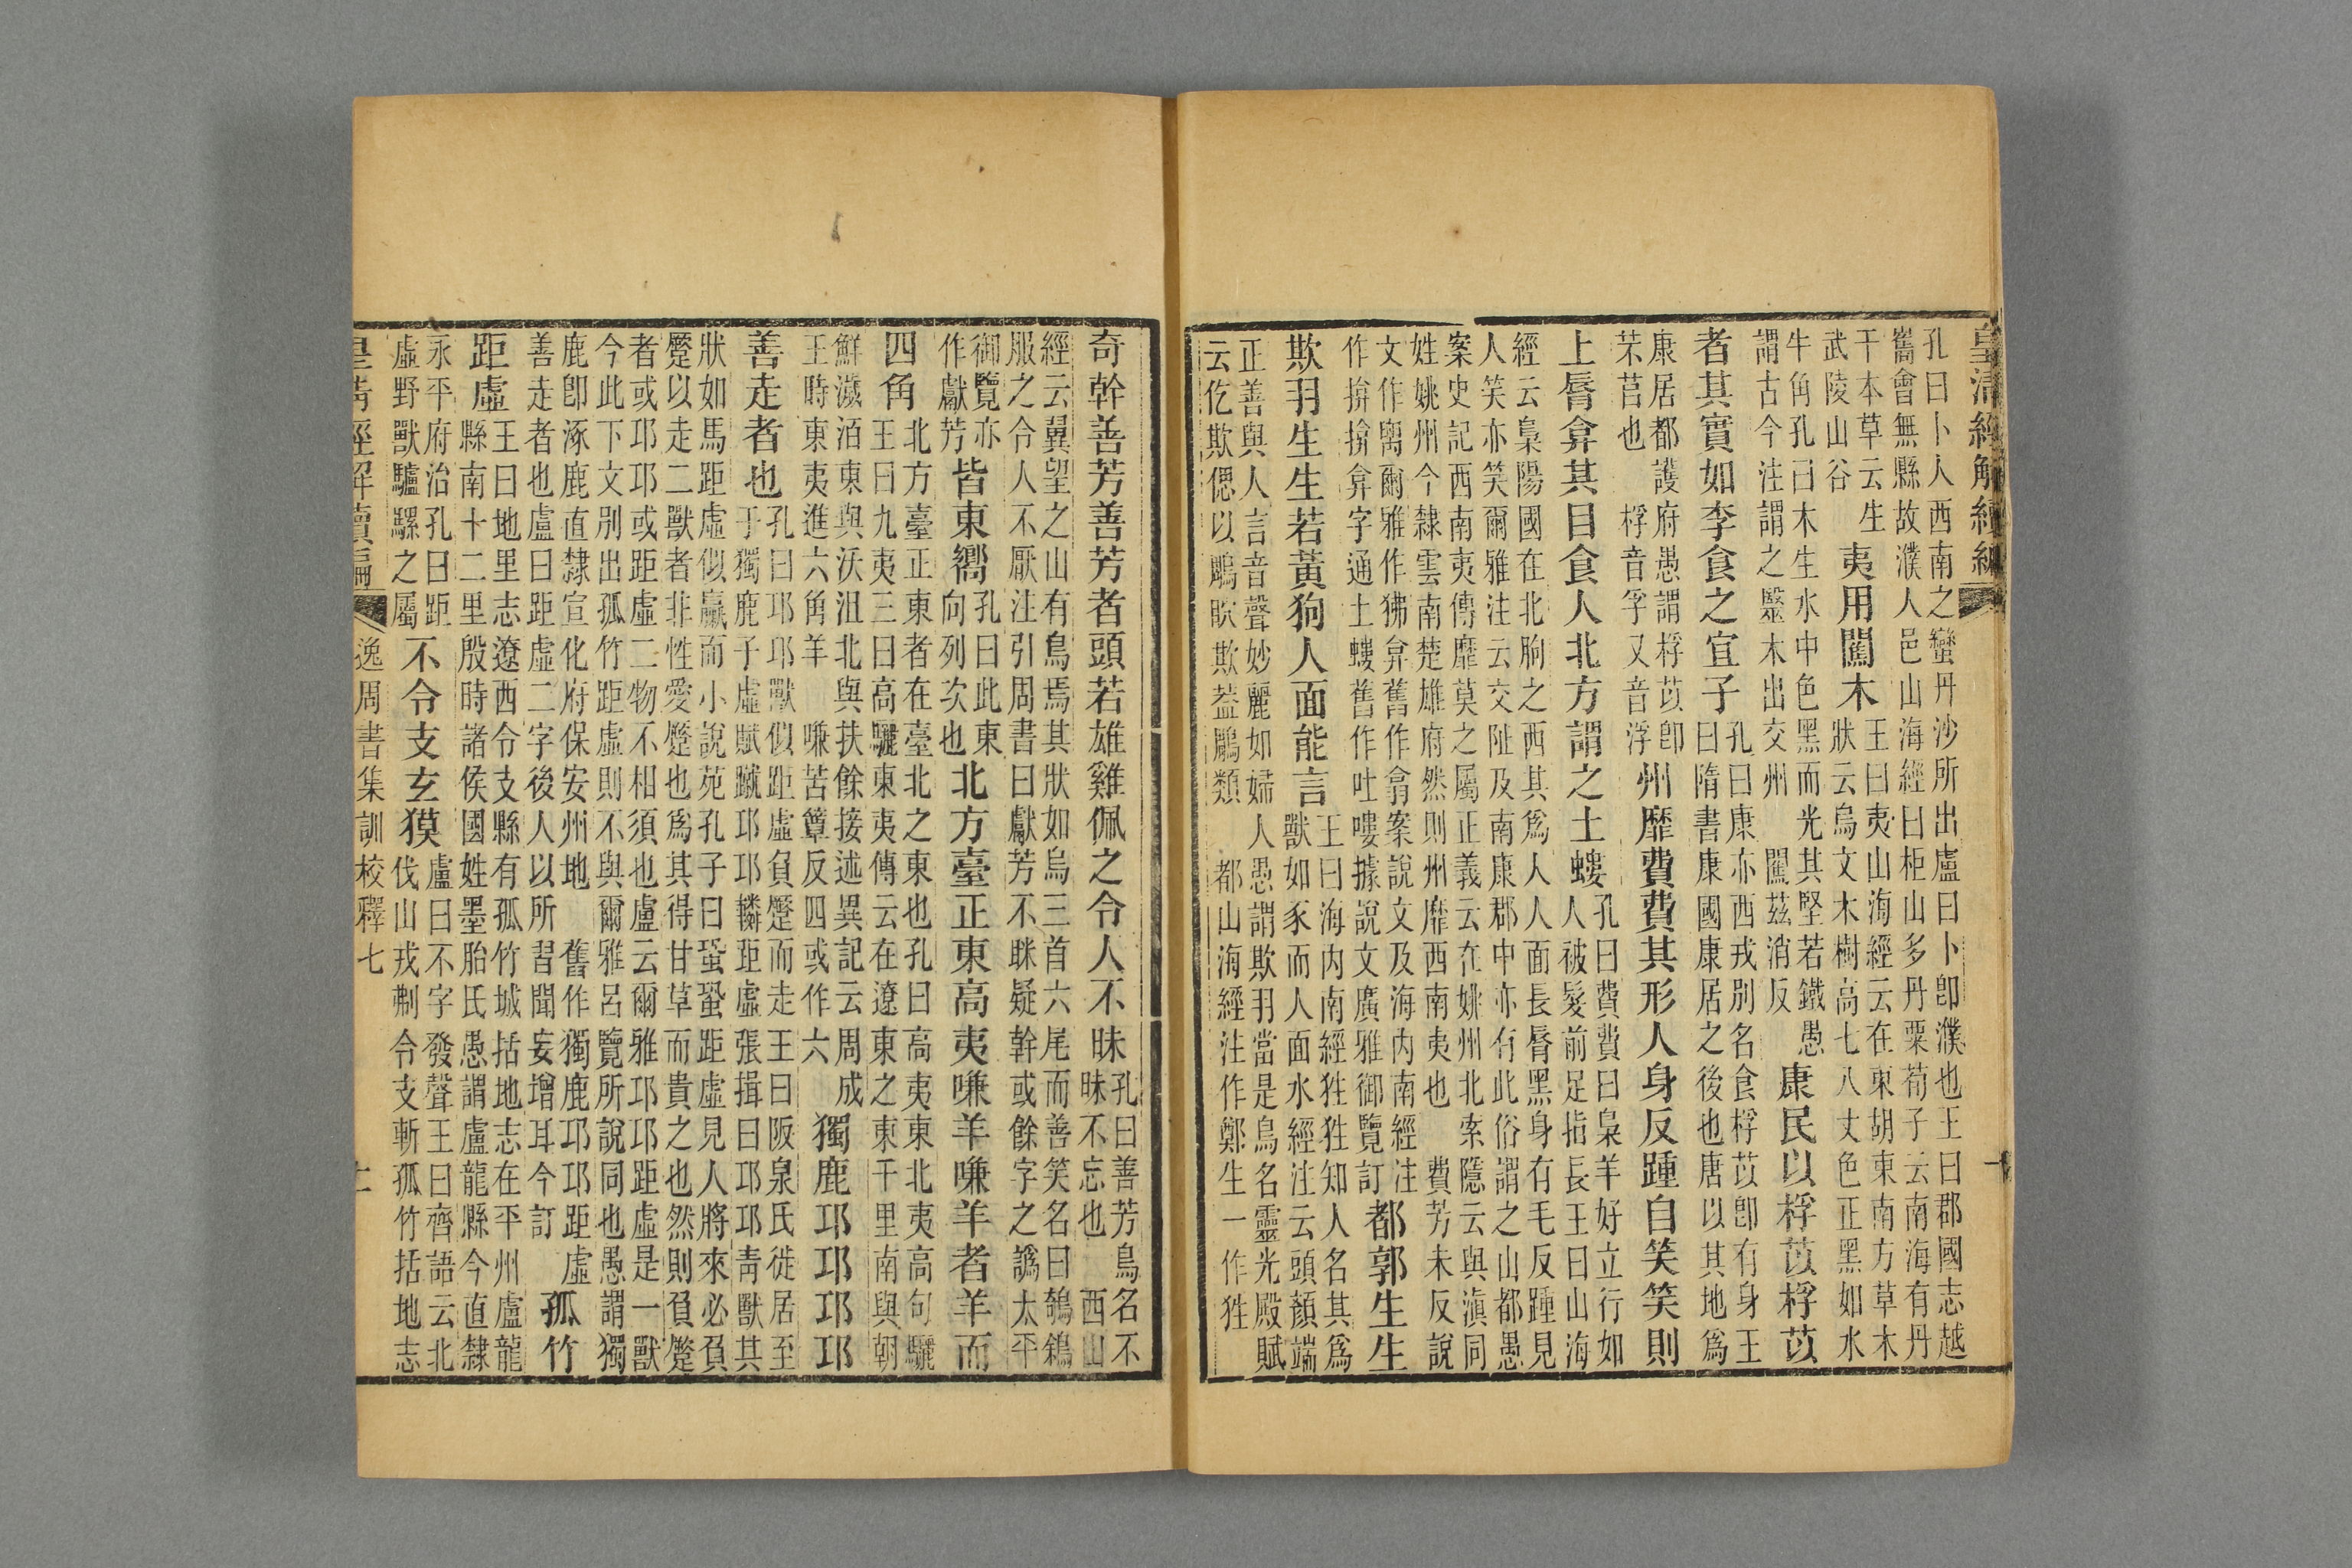 皇清經解續編 十
孔曰卜人西南之蠻丹沙所出盧曰卜卽濮也王曰郡國志越
巂會無縣故濮人邑山海經曰柜山多丹粟荀子云南海有丹
干本草云生
武陵山谷
夷用闟木
王曰夷山海經云在東胡東南方草木
狀云烏文木樹高七八丈色正黑如水
牛角孔曰木生水中色黑而光其堅若鐵愚
謂古今注謂之瑿木出交州 闟茲消反
康民以桴苡桴苡
者其實如李食之宜子
孔曰康亦西戎別名食桴苡卽有身王
曰隋書康國康居之後也唐以其地爲
康居都護府愚謂桴苡卽
芣苢也 桴音孚又音浮
州靡費費其形人身反踵自笑笑則
上脣弇其目食人北方謂之土螻
孔曰費費曰梟羊好立行如
人被髮前足指長王曰山海
經云梟陽國在北朐之西其爲人人面長脣黑身有毛反踵見
人笑亦笑爾雅注云交阯及南康郡中亦有此俗謂之山都愚
案史記西南夷傳靡莫之屬正義云在姚州北索隱云與滇同
姓姚州今隸雲南楚雄府然則州靡西南夷也 費芳未反說
文作爾雅作狒弇舊作翕案說文及海内南經注
作揜揜弇字通土螻舊作吐嘍據說文廣雅御覽訂
都郭生生
欺羽生生若黃狗人面能言
王曰海内南經狌狌知人名其爲
獸如豕而人面水經注云頭顏端
正善與人言音聲妙麗如婦人愚謂欺羽當是鳥名靈光殿賦
云仡欺偲以鵰䀢欺葢鵰類 都山海經注作鄭生一作狌
奇幹善芳善芳者頭若雄雞佩之令人不昧
孔曰善芳鳥名不
昧不忘也 西山
經云翼望之山有鳥焉其狀如烏三首六尾而善笑名曰鵸鵌
服之令人不厭注引周書曰獻芳不眯疑幹或餘字之譌太平
御覽亦
作獻芳
皆東嚮
孔曰此東
向列次也
北方臺正東高夷嗛羊嗛羊者羊而
四角
北方臺正東者在臺北之東也孔曰高夷東北夷高句驪
王曰九夷三曰高驪東夷傳云在遼東之東千里南與朝
鮮濊東與沃沮北與扶餘接述異記云周成
王時東夷進六角羊 嗛苦簟反四或作六
獨鹿邛邛邛邛
善走者也
孔曰邛邛獸似距虛負蹷而走王曰阪泉氏徙居至
于獨鹿子虛賦蹴邛邛轔距虛張揖曰邛邛靑獸其
狀如馬距虛似驘而小說苑孔子曰蛩蛩距虛見人將來必負
蹷以走二獸者非性愛蹷也爲其得甘草而貴之也然則負蹷
者或邛邛或距虛二物不相須也盧云爾雅邛邛距虛是一獸
今此下文別出孤竹距虛則不與爾雅呂覽所說同也愚謂獨
鹿卽涿鹿直隸宣化府保安州地 舊作獨鹿邛邛距虛
善走者也盧曰距虛二字後人以所習聞妄增耳今訂
孤竹
距虛
王曰地里志遼西令支縣有孤竹城括地志在平州盧龍
縣南十二里殷時諸侯國姓墨胎氏愚謂盧龍縣今直隸
永平府治孔曰距
虛野獸驢騾之屬
不令支玄獏
盧曰不字發聲王曰齊語云北
伐山戎刜令支斬孤竹括地志
皇清經解續編 逸周書集訓校釋七 十一